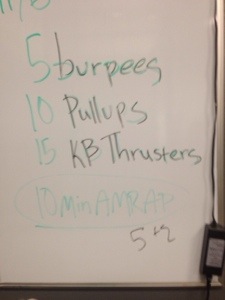 5 burpees
10 Pullups
15 KB Thrusters
10 Min AMRAP